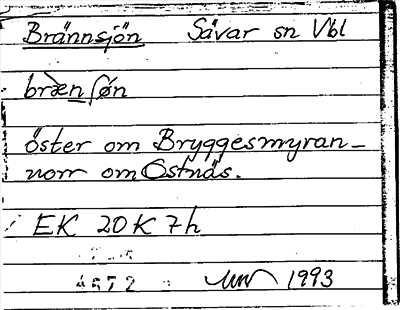 Brännsjön Sävar sn Vbl
brænʃøn
öster om Bryggesmyran_
norr om Ostnäs.
EK 20K 7h
4572 1993